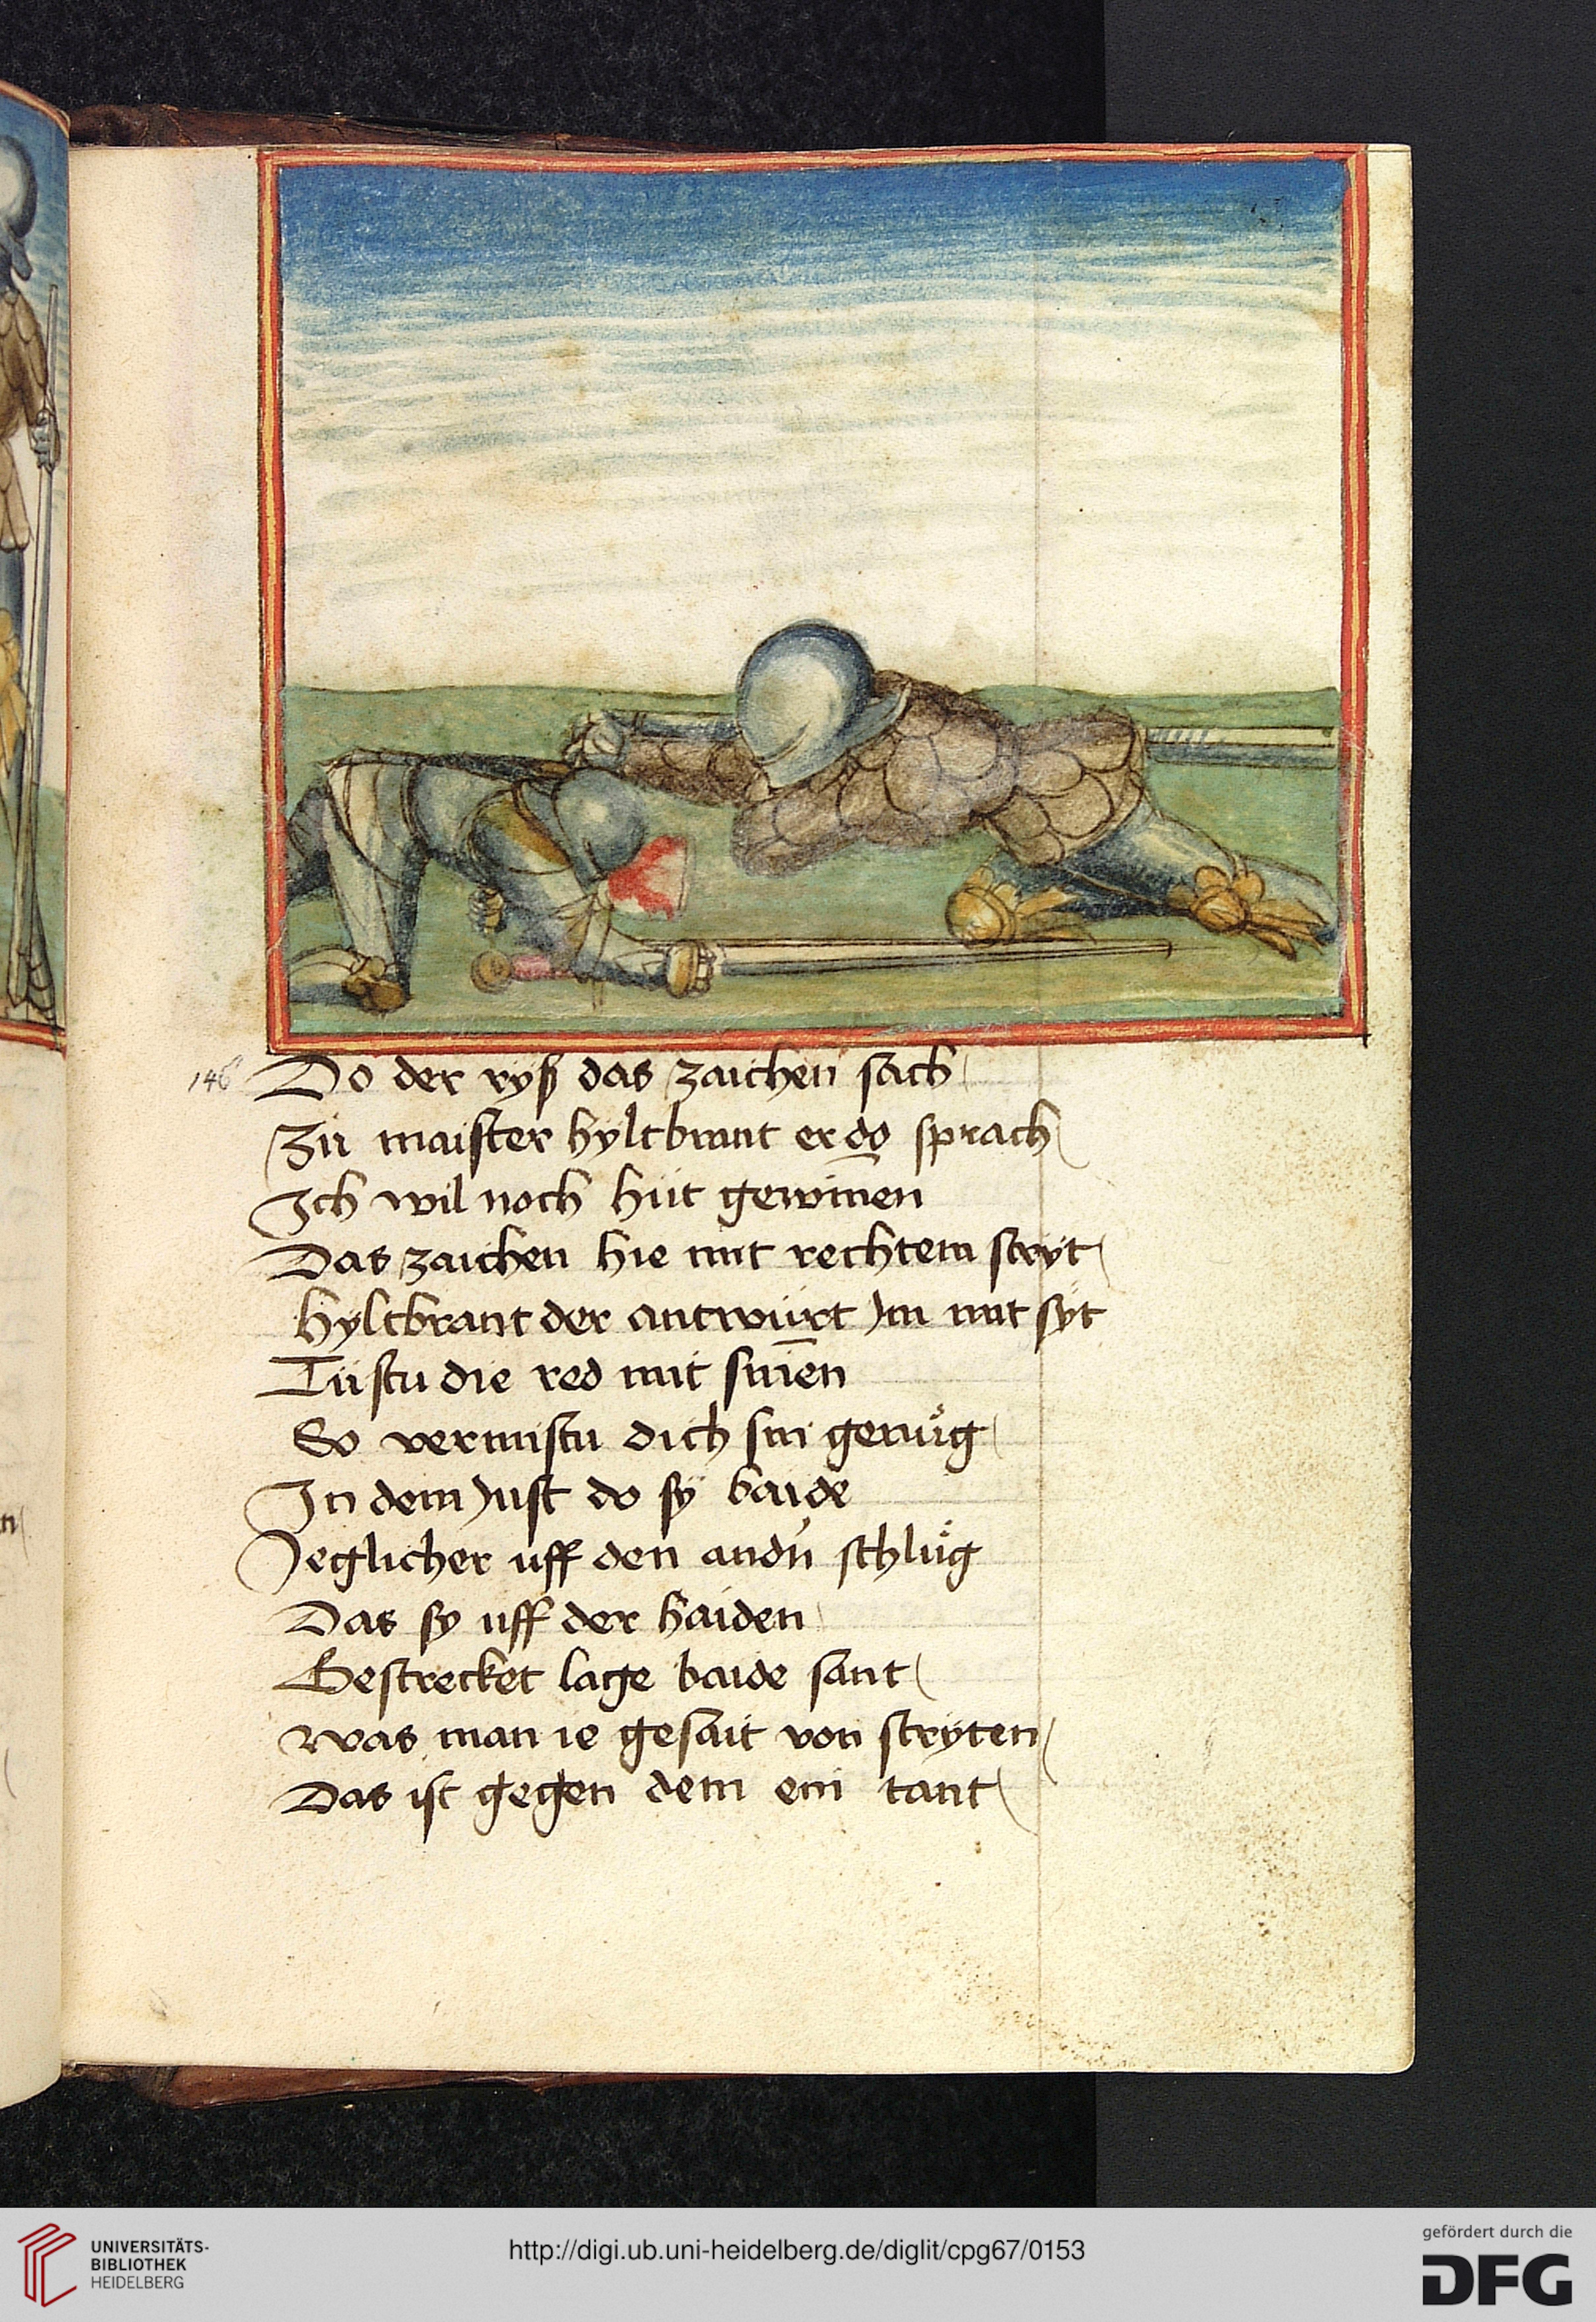 146
Do der ryß das zaichen sach
Zü maister hyltbrant er do sprach
Ich wil noch hüt gewin̅en
Das zaichen hie mit rechtem stryt
hyltbrant der antwürt Im mit syt
Tüstu die red mit sin̅en
So vermistu dich sin genuͦg
In dem Just do sy baide
Jeglicher uff den andn̄ schluͦg
Das sy uff der haiden
Gestrecket lage baide sant
Was man ie gesait von stryten
Das ist gegen dem ein tant
UNIVERSITÄTS-
BIBLIOTHEK
HEIDELBERG
http://digi.ub.uni-heidelberg.de/diglit/cpg67/0153
gefördert durch die
DFG